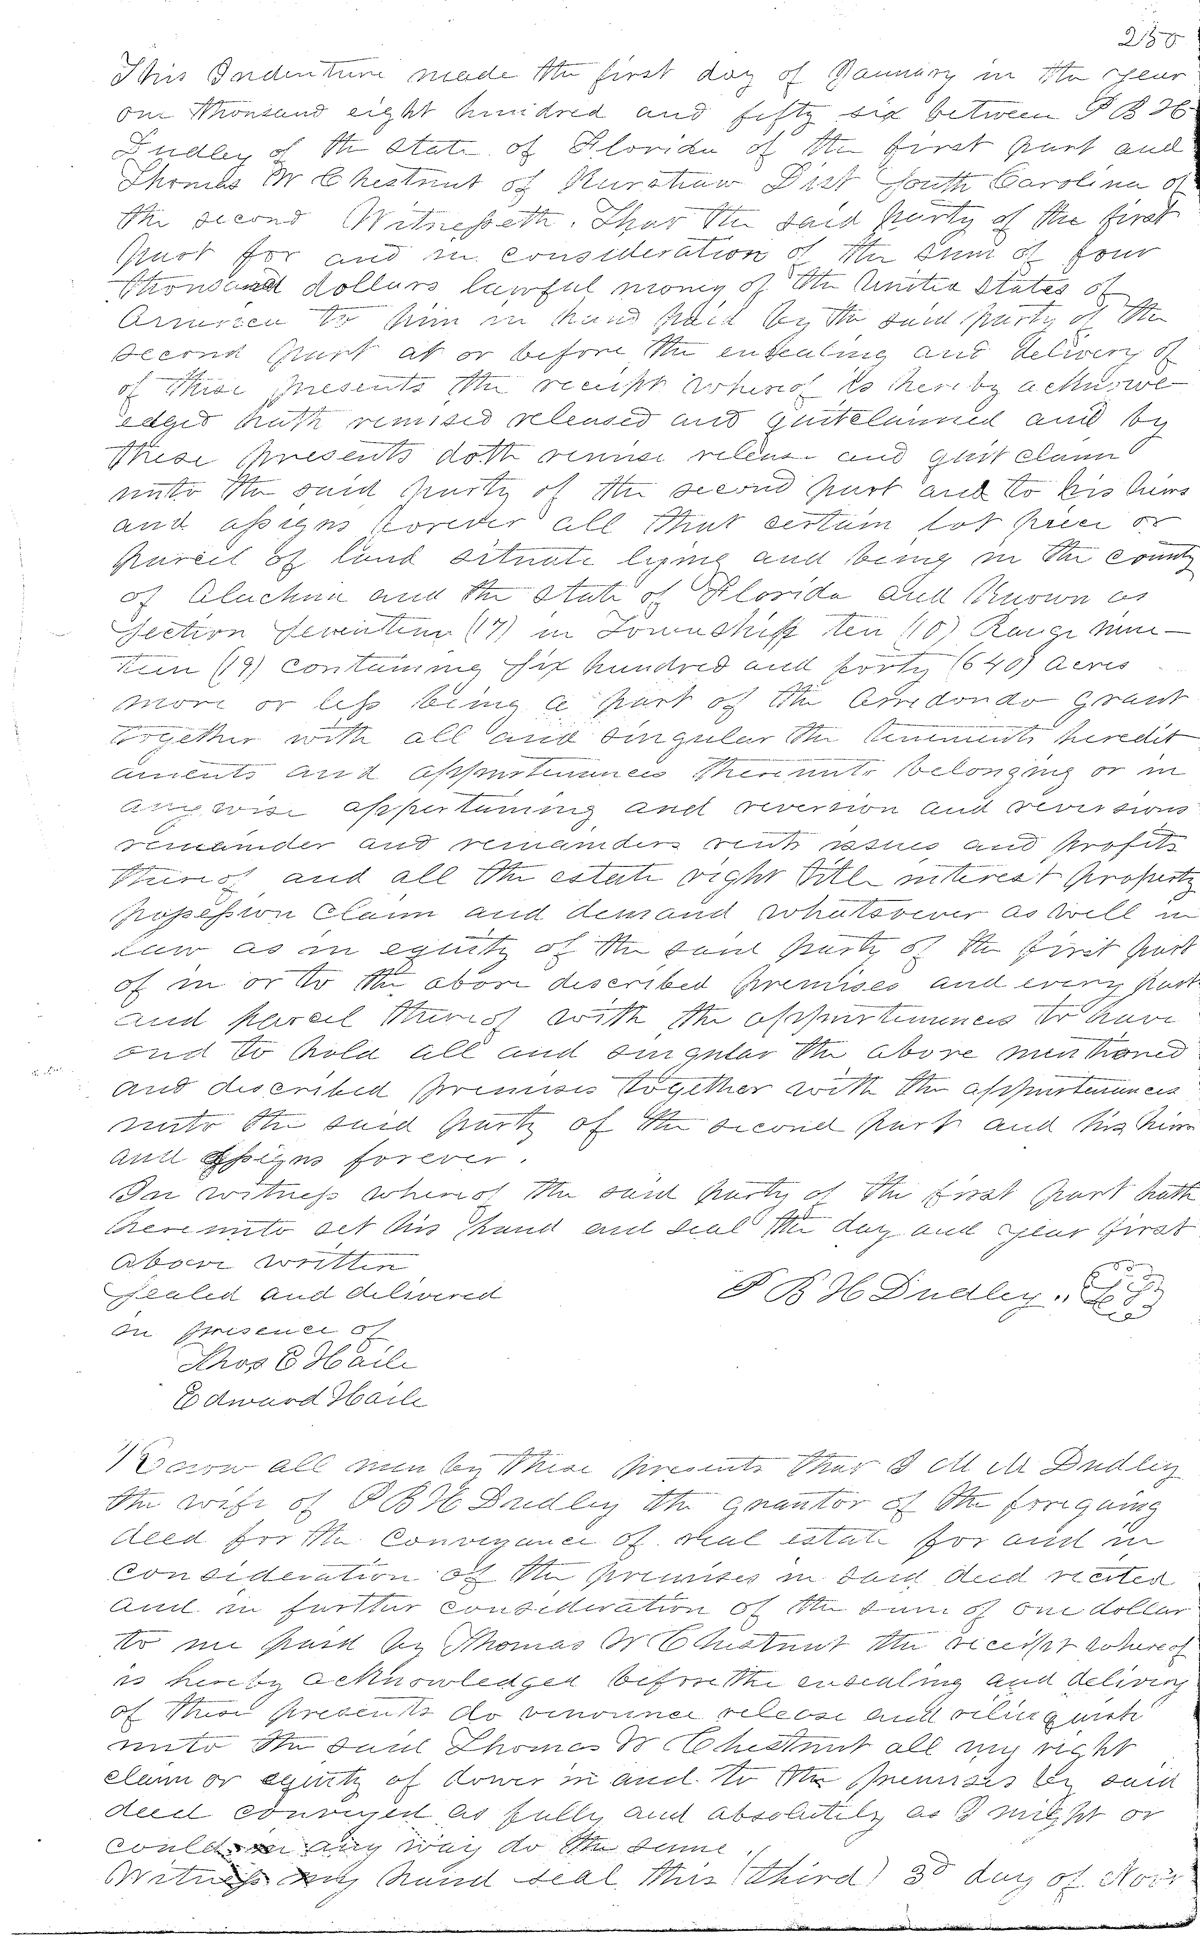 230
This Indenture made the first day of January in the year
one thousand eight hundred and fifty six between P B H
Dudley of the state of Florida of the first part and
Thomas W Chestnut of Kurshaw Dist South Carolina of
the second Witnesseth. That the said party of the first
part for and in consideration of the sum of four
thousand dollars lawful money of the United States of
America to him in hand paid by the said party of the
second part at or before the ensealing and delivery of
of these presents the receipt whereof is hereby acknowl-
edged hath remised released and quitclaimed and by
these presents doth remise release and quit claim
unto the said party of the second part and to his heirs
and assigns forever all that certain lot piece or
parcel of land situate lying and being in the county
of Alachua and the state of Florida and known as
Section Seventeen (17) in Township ten (10) Range nine-
teen (19) containing Six hundred and forty (640) acres
more or less being a part of the Arredondo grant
together with all and singular the tenements heredit
aments and appurtenances thereunto belonging or in
anywise appertaining and reversion and reversions
remainder and remainders rents issues and profits
thereof and all the estate right title interest property
possession claim and demand whatsoever as well in
law as in equity of the said party of the first part
of in or to the above described premises and every part
and parcel thereof with the appurtenances to have
and to hold all and singular the above mentioned
and described premises together with the appurtenances
unto the said party of the second part and his heirs
and assigns forever.
In witness whereof the said party of the first part hath
hereunto set his hand and seal the day and year first
above written
Sealed and delivered P B H Dudley .. LS
in presence of
Thos E Haile
Edward Haile
Know all men by these presents that I M M Dudley
the wife of P B H Dudley the grantor of the foregoing
deed for the conveyance of real estate for and in
consideration of the premises in said deed recited
and in further consideration of the sum of one dollar
to me paid by Thomas W Chestnut the receipt whereof
is hereby acknowledged before the ensealing and delivery
of these presents do renounce release and relinquish
unto the said Thomas W Chestnut all my right
claim or equity of dower in and to the premises by said
deed conveyed as fully and absolutely as I might or
could in any way do the same.
Witness my hand seal this (third) 3d day of Novr